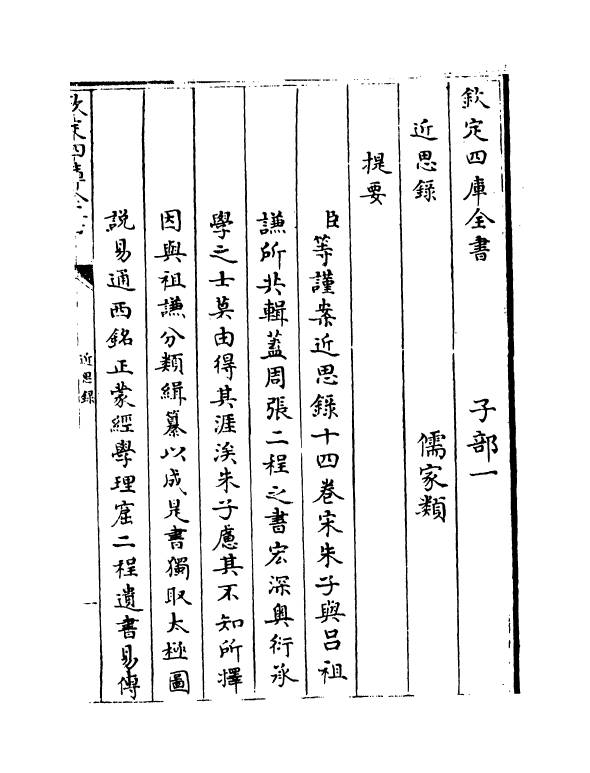 欽定四庫全書　子部一
近思錄　儒家類
提要
臣等謹案近思錄十四卷宋朱子與呂祖
謙所共輯蓋周張二程之書宏深奧衍承
學之士莫由得其涯涘朱子慮其不知所擇
因與祖謙分類緝纂以成是書獨取太極圖
說易通西銘正蒙經學理窟二程遺書易傳
欽定四庫全書
近思錄
一